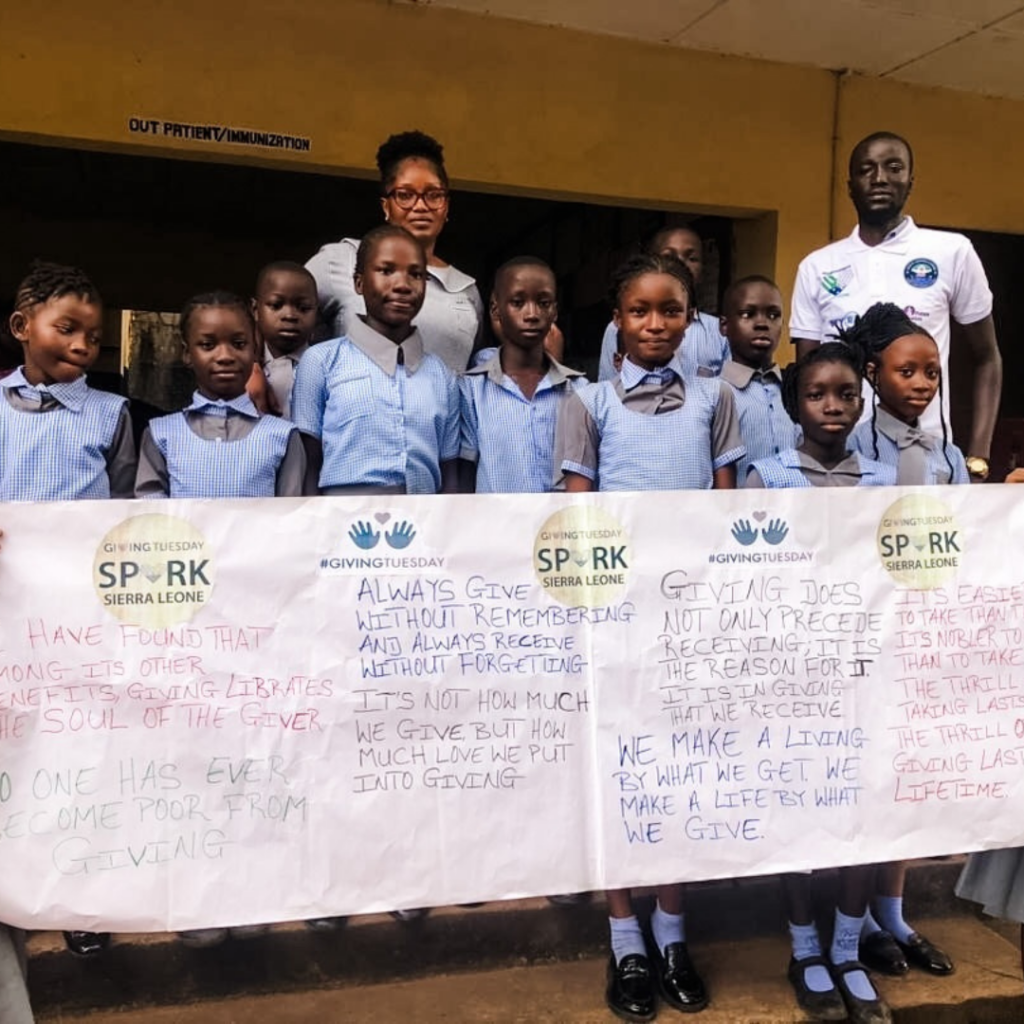 OUT PATIENT/IMMUNIZATION
GIVINGTUESDAY
SPARK
SIERRA LEONE
HAVE FOUND THAT
ITS OTHER
GIVING LIBRATES
SOUL OF THE GIVER
ONE HAS EVER
POOR FROM
GIVING
#GIVINGTUESDAY
ALWAYS GIVE
WITHOUT REMEMBERING
AND ALWAYS RECEIVE
WITHOUT FORGETTING
IT'S NOT HOW MUCH
WE GIVE, BUT HOW
MUCH LOVE WE PUT
INTO GIVING
GIVINGTUESDAY
SPARK
SIERRA LEONE
#GIVINGTUESDAY
GIVING DOES
NOT ONLY PRECEDE
RECEIVING, IT IS
THE REASON FOR IT.
IT IS IN GIVING
THAT WE RECEIVE
WE MAKE A LIVING
BY WHAT WE GET. WE
MAKE A LIFE BY WHAT
WE GIVE.
GIVINGTUESDAY
SPARK
SIERRA LEONE
IT'S
TO TAKE THAN
ITS NOBLER TO
THAN TO TAKE
THE THRILL
TAKING LASTS
THE THRILL
GIVING
LIFETIME.